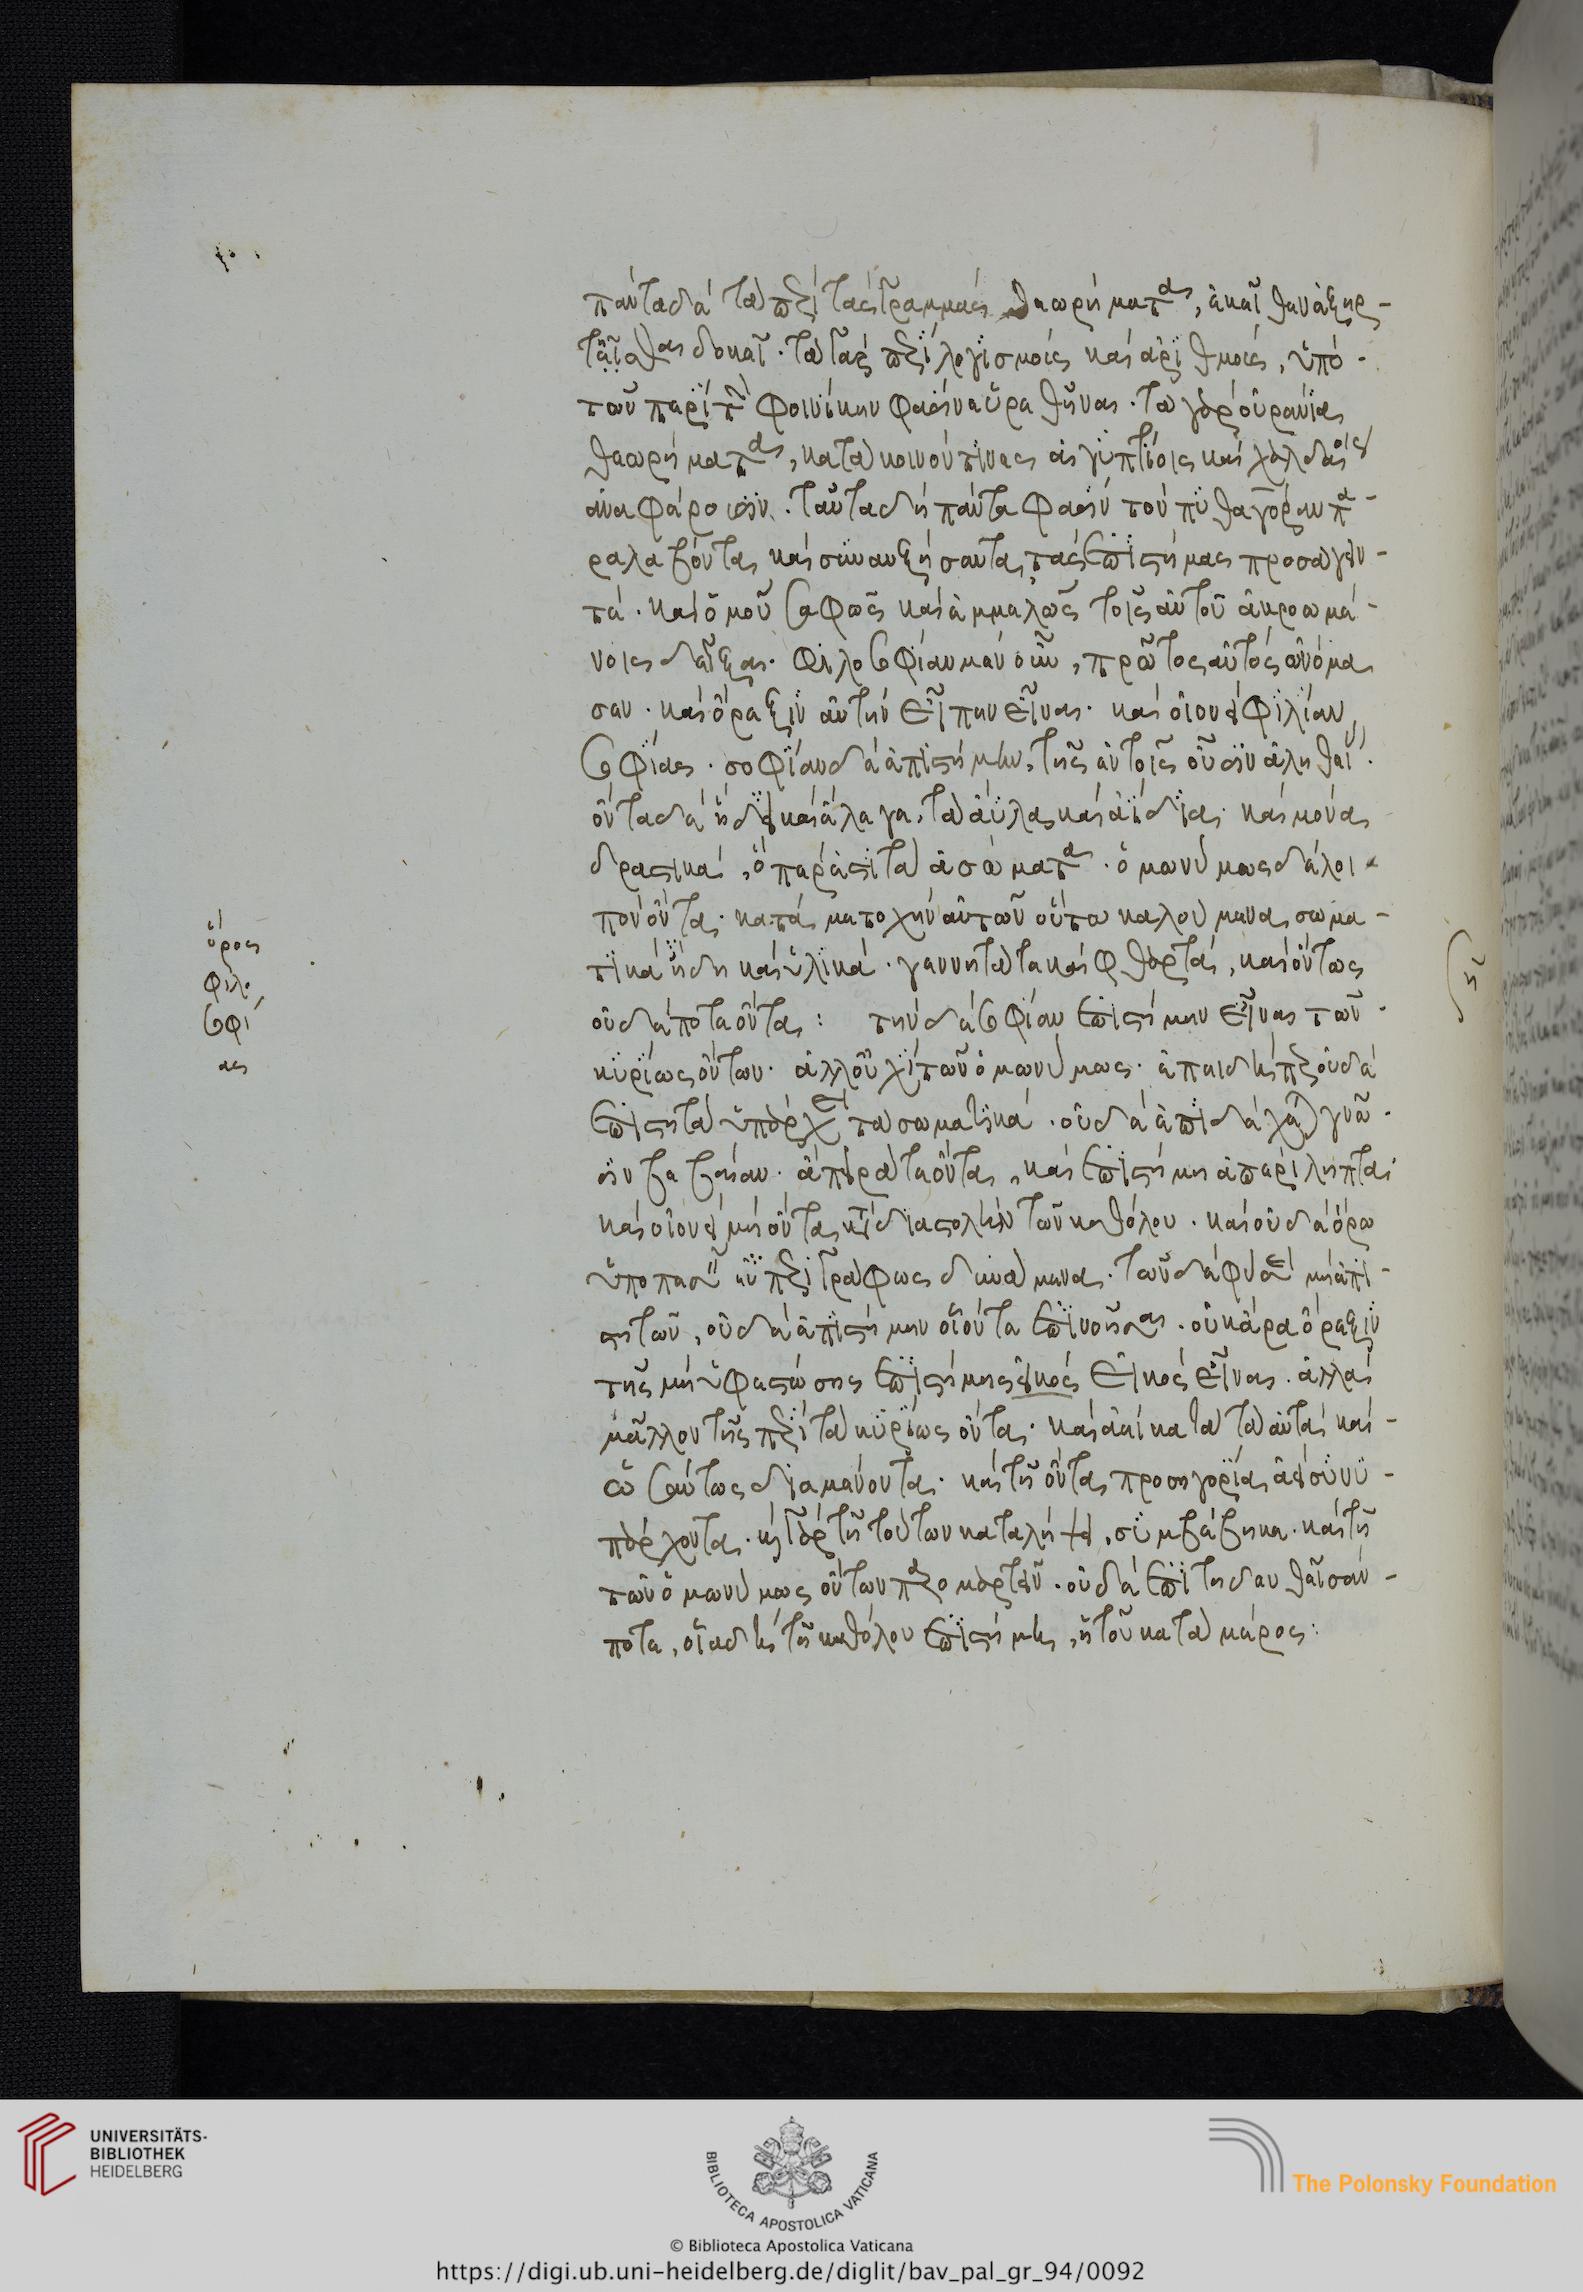 πάντα δὲ τὰ περὶ τὰς γραμμὰς θεωρήματα, ἐκεῖθεν ἐξηρ-
τῆσθαι δοκεῖ. τὰ γὰρ περὶ λογισμοὺς καὶ ἀριθμοὺς, ὑπὸ
τῶν περὶ τὴν φοινίκην φασὶν εὑρεθῆναι. τὰ γὰρ οὐράνια
θεωρήματα, κατὰ κοινόν τινες αἰγυπτίοις καὶ χαλδαίοις
ἀναφέρουσιν. ταῦτα δὴ πάντα φασὶν τὸν πυθαγόραν πα-
ραλαβόντα, καὶ συναυξήσαντα, τὰς ἐπιστήμας προσάγειν
τέ. καὶ ὁμοῦ σαφῶς καὶ ἐμμελῶς τοῖς αὐτοῦ ἀκροωμέ-
νοις δεῖξαι. φιλοσοφίαν μὲν οὖν, πρῶτος αὐτὸς ὠνόμα
σεν. καὶ ὄρεξιν αὐτὴν εἶπεν εἶναι. καὶ οἱονεὶ φιλίαν
σοφίας. σοφίαν δὲ ἐπιστήμην, τῆς ἐν τοῖς οὖσιν ἀληθείας.
ὄντα δὲ ᾔδει καὶ ἔλεγε, τὰ ἄϋλα καὶ ἀΐδια καὶ μόνα
δραστικά, ὅπερ ἐστὶ τὰ ἀσώματα. ὁμωνύμως δὲ λοι-
πὸν ὄντα. κατὰ μετοχὴν αὐτῶν οὕτω καλούμενα σωμα-
τικὰ ἤδη καὶ ὑλικά. γεννητά τε καὶ φθαρτά, καὶ ὄντως
οὐδέποτε ὄντα: τὴν δὲ σοφίαν ἐπιστήμην εἶναι τῶν
κυρίως ὄντων. ἀλλ' οὐχὶ τῶν ὁμωνύμως. ἐπειδήπερ οὐδὲ
ἐπιστητὰ ὑπάρχει τὰ σωματικά. οὐδὲ ἐπιδέχεται γνῶ-
σιν βεβαίαν. ἄπειρά τε ὄντα, καὶ ἐπιστήμη ἀπερίληπτα
καὶ οἱονεὶ μὴ ὄντα κατὰ διαστολὴν τῶν καθόλου. καὶ οὐδὲ ὅρω
ὑποπεσεῖν εὐπεριγράφως δυνάμενα. τῶν δὲ φύσει μὴ ἐπι-
στητῶν, οὐδὲ ἐπιστήμην οἷόν τε ἐπινοῆσαι. οὐκ ἄρα ὄρεξιν
τῆς μὴ ὑφεστώσης ἐπιστήμης εἰκὸς εἰκὸς εἶναι. ἀλλὰ
μᾶλλον τῆς περὶ τὰ κυρίως ὄντα. καὶ ἀεὶ κατὰ τὰ αὐτὰ καὶ
ὡσαύτως διαμένοντα. καὶ τῇ ὄντα προσηγορία ἀεὶ συνυ-
πάρχοντα. καὶ γὰρ τῇ τούτων καταλήψει, συμβέβηκε. καὶ τῇ
τῶν ὁμωνύμως ὄντων παρομαρτεῖν. οὐδὲ ἐπιτηδευθεῖσάν
ποτε, οἷα δὴ τῇ καθόλου ἐπιστήμη, ἡ τοῦ κατὰ μέρος:
ὅρος
φιλο
σοφί
ας
UNIVERSITÄTS-
BIBLIOTHEK
HEIDELBERG
BIBLIOTECA APOSTOLICA VATICANA
The Polonsky Foundation
© Biblioteca Apostolica Vaticana
https://digi.ub.uni-heidelberg.de/diglit/bav_pal_gr_94/0092